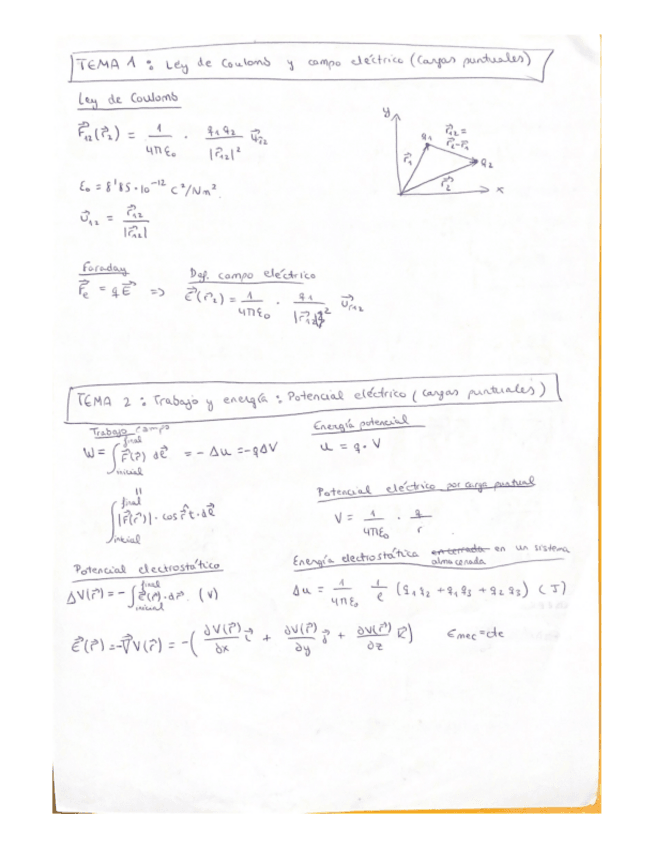 TEMA 1 : Ley de Coulomb y campo eléctrico (Cargas puntuales)
Ley de Coulomb
F⃗₁₂(r⃗₂) = 1/4πε₀ · q₁q₂/|r⃗₁₂|² u⃗r₁₂
ε₀ = 8'85·10⁻¹² C²/Nm²
u⃗₁₂ = r⃗₁₂/|r⃗₁₂|
y
q₁
r⃗₁₂ =
r⃗₂-r⃗₁
q₂
r⃗₁
r⃗₂
x
Faraday
F⃗e = qE⃗ =>
Def. campo eléctrico
E⃗(r⃗₂) = 1/4πε₀ · q₁/|r⃗₁₂|² u⃗r₁₂
TEMA 2 : Trabajo y energía : Potencial eléctrico (cargas puntuales)
Trabajo campo
W = ∫ final inicial F⃗(r⃗) dℓ⃗ = -Δu = -qΔV
Energía potencial
u = q · V
"
∫ final inicial |F⃗(r⃗)| · cos r̂t · dℓ⃗
Potencial eléctrico por carga puntual
V = 1/4πε₀ · q/r
Potencial electrostático
ΔV(r⃗) = -∫ final inicial E⃗(r⃗)·dr⃗. (V)
Energía electrostática encerrada en un sistema
almacenada
Δu = 1/4πε₀ 1/ℓ (q₁q₂ + q₁q₃ + q₂q₃) (J)
E⃗(r⃗) = -∇⃗V(r⃗) = -(∂V(r⃗)/∂x i⃗ + ∂V(r⃗)/∂y j⃗ + ∂V(r⃗)/∂z k⃗)
Emec = cte